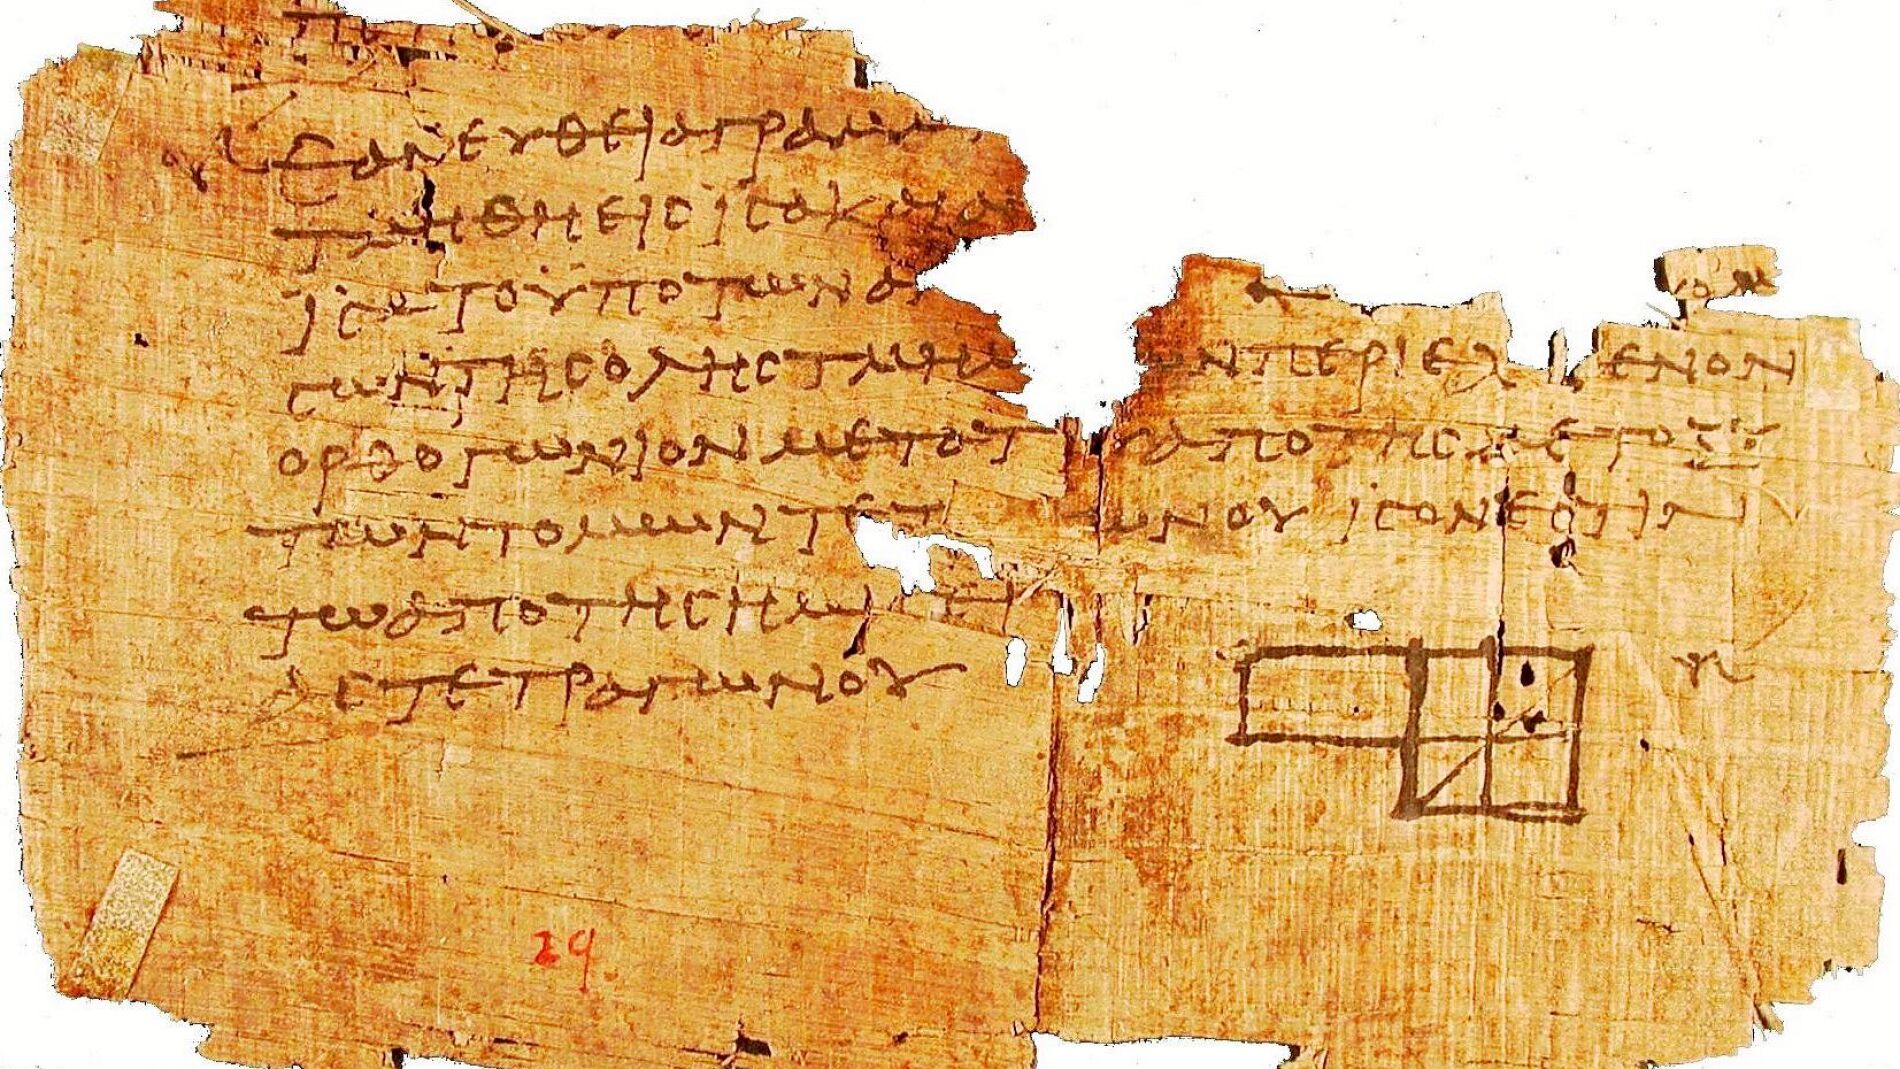 ΕΑΝ ΕΥΘΕΙΑ ΓΡΑΜΜ
ΤΜΗΘΗ ΕΙϹ ΙϹΑ ΚΑΙ Α
ΙϹΑ ΤΟ ΥΠΟ ΤΩΝ ΑΝ
ϹΩΝ ΤΗϹ ΟΛΗϹ ΤΜΗΜ ΩΝ ΠΕΡΙΕΧ ΕΝΟΝ
ΟΡΘΟΓΩΝΙΟΝ ΜΕΤΑ Τ ΑΠΟ ΤΗϹ ΜΕΤΟΞΥ
ΤΩΝ ΤΟΜΩΝ ΤΕΤ ΩΝΟΥ ΙϹΟΝ ΕϹΤΙΝ
ΤΩ ΑΠΟ ΤΗϹ ΗΜΙ ΕΙ
ΑϹ ΤΕΤΡΑΓΩΝΟΥ
29